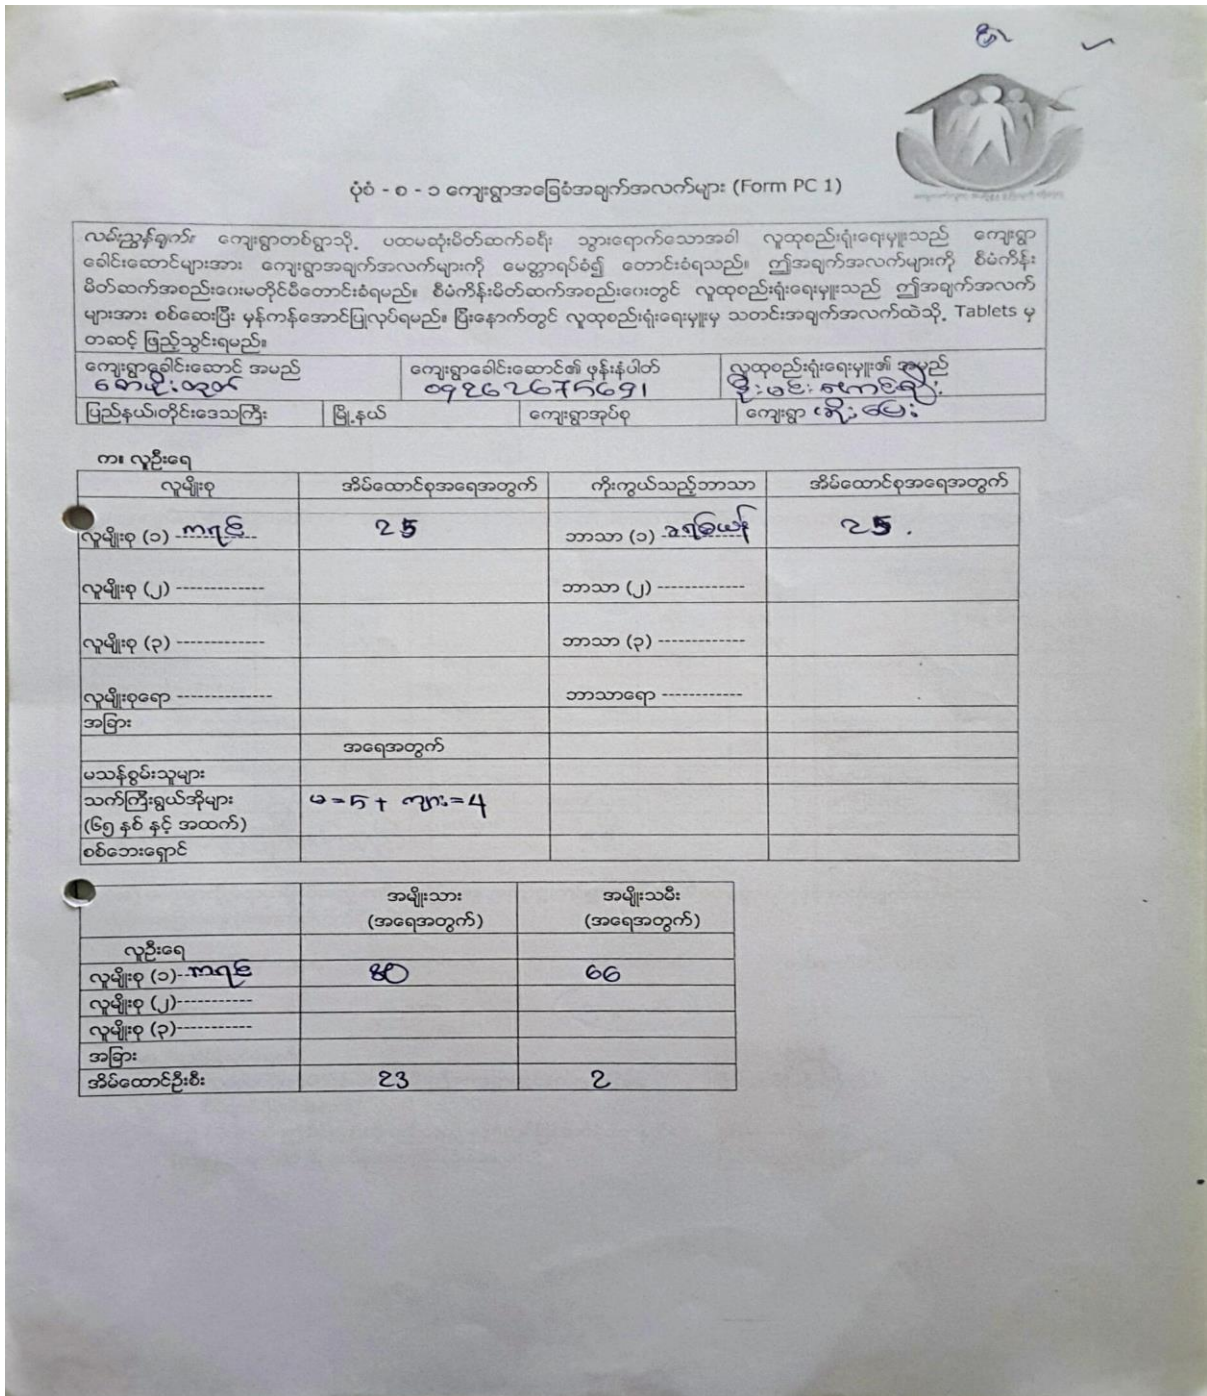 ပုံစံ - စ - ၁ ကျေးရွာအခြေခံအချက်အလက်များ (Form PC 1)
လမ်းညွှန်ချက်။ ကျေးရွာတစ်ရွာသို့ ပထမဆုံးမိတ်ဆက်ခရီး သွားရောက်သောအခါ လူထုစည်းရုံးရေးမှူးသည် ကျေးရွာ
ခေါင်းဆောင်များအား ကျေးရွာအချက်အလက်များကို မေတ္တာရပ်ခံ၍ တောင်းခံရသည်။ ဤအချက်အလက်များကို စီမံကိန်း
မိတ်ဆက်အစည်းဝေးမတိုင်မီတောင်းခံရမည်။ စီမံကိန်းမိတ်ဆက်အစည်းဝေးတွင် လူထုစည်းရုံးရေးမှူးသည် ဤအချက်အလက်
များအား စစ်ဆေးပြီး မှန်ကန်အောင်ပြုလုပ်ရမည်။ ပြီးနောက်တွင် လူထုစည်းရုံးရေးမှူးမှ သတင်းအချက်အလက်ထဲသို့ Tablets မှ
တဆင့် ဖြည့်သွင်းရမည်။
ကျေးရွာခေါင်းဆောင် အမည် ကျေးရွာခေါင်းဆောင်၏ ဖုန်းနံပါတ် လူထုစည်းရုံးရေးမှူး၏ အမည်
09262675691
ပြည်နယ်၊တိုင်းဒေသကြီး မြို့နယ် ကျေးရွာအုပ်စု ကျေးရွာ
က။ လူဦးရေ
လူမျိုးစု အိမ်ထောင်စုအရေအတွက် ကိုးကွယ်သည့်ဘာသာ အိမ်ထောင်စုအရေအတွက်
လူမျိုးစု (၁) ကရင် 25 ဘာသာ (၁) ခရစ်ယန် 25 .
လူမျိုးစု (၂) ------------- ဘာသာ (၂) -------------
လူမျိုးစု (၃) ------------- ဘာသာ (၃) -------------
လူမျိုးစုရော -------------- ဘာသာရော ------------
အခြား
အရေအတွက်
မသန်စွမ်းသူများ
သက်ကြီးရွယ်အိုများ မ=5+ ကျား=4
(၆၅ နှစ် နှင့် အထက်)
စစ်ဘေးရှောင်
အမျိုးသား အမျိုးသမီး
(အရေအတွက်) (အရေအတွက်)
လူဦးရေ
လူမျိုးစု (၁)--ကရင် 80 66
လူမျိုးစု (၂)-----------
လူမျိုးစု (၃)-----------
အခြား
အိမ်ထောင်ဦးစီး 23 2